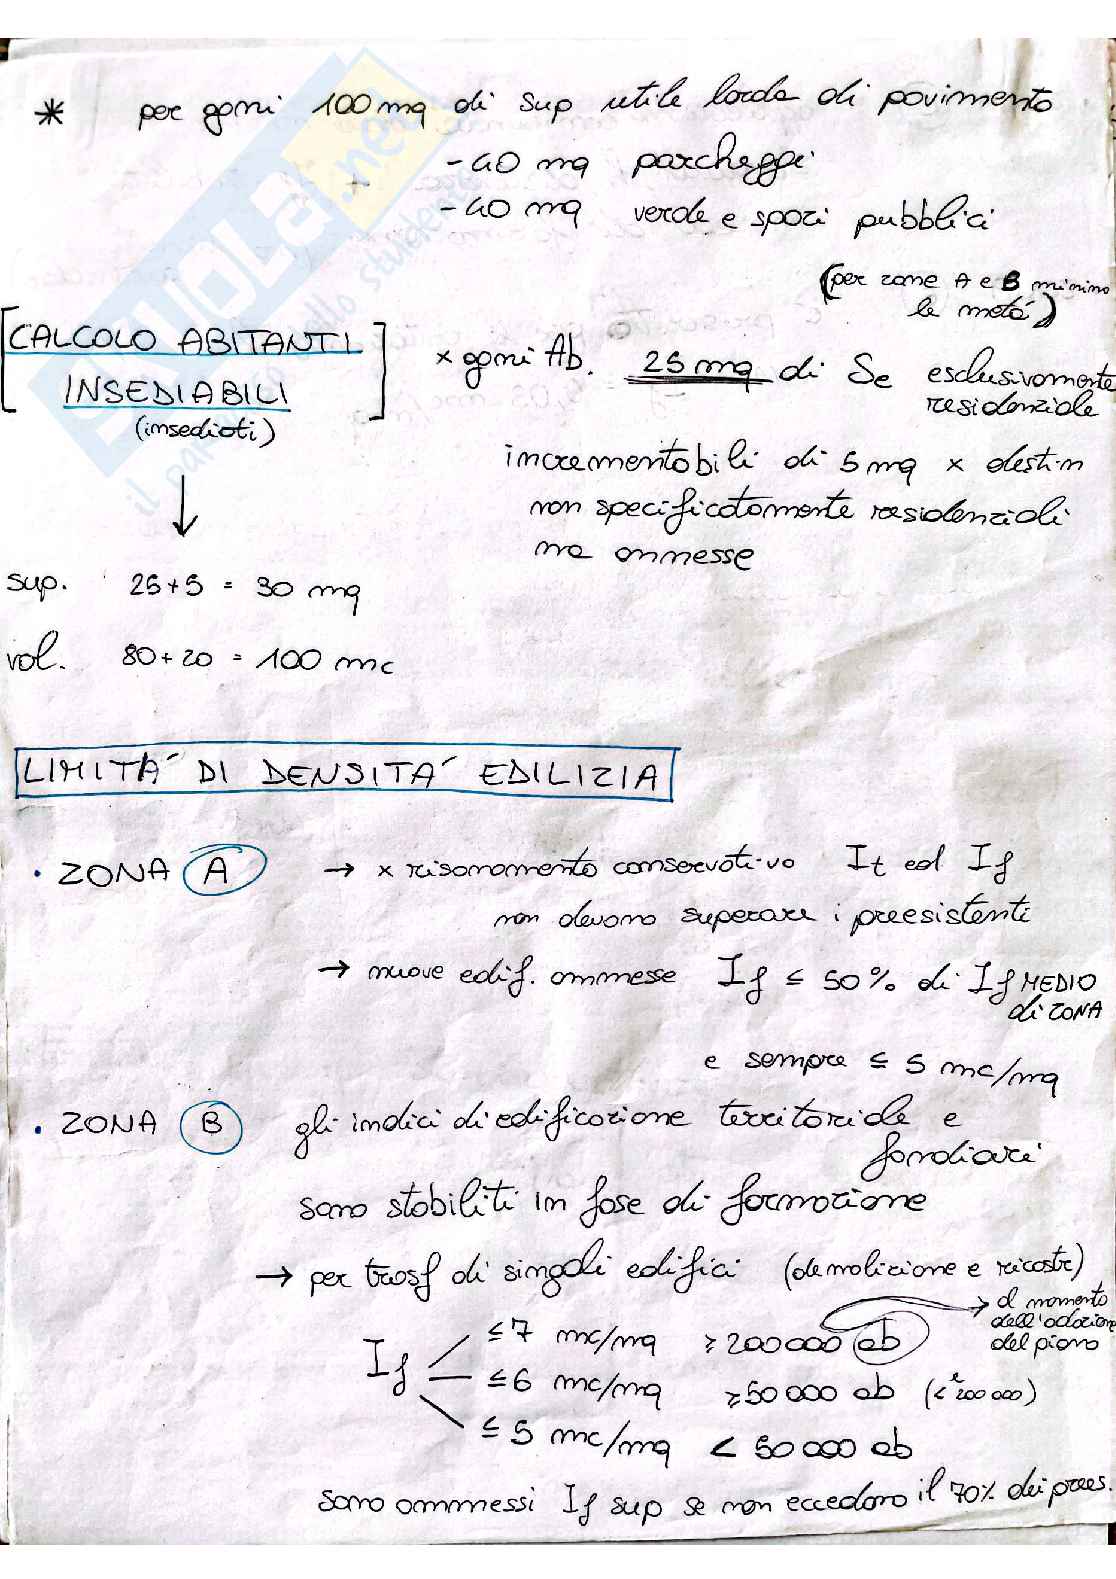 * per gomi 100 mq di sup utile lorda di pavimento
- 40 mq parcheggi
- 40 mq verde e spazi pubblici
(per zone A e B minimo
la metá)
[CALCOLO ABITANTI
INSEDIABILI]
(insediati)
x gomi Ab. 25 mq di Se esclusivamente
residenziale
incrementabili di 5 mq x destin
non specificatamente residenziali
ma ammesse
sup. 25+5 = 30 mq
vol. 80+20 = 100 mc
LIMITA' DI DENSITA' EDILIZIA
• ZONA A → x risanamento conservativo It ed If
non devono superare i preesistenti
→ nuove edif. ammesse If ≤ 50% di If MEDIO
di ZONA
e sempre ≤ 5 mc/mq
• ZONA B gli indici di edificazione territoriale e
fondiari
sono stabiliti in fase di formazione
→ per trasf di singoli edifici (demolizione e ricostr)
→ al momento
dell'adozione
del piano
If ≤7 mc/mq ≥ 200000 ab
≤6 mc/mq ≥50 000 ab (< 200 000)
≤ 5 mc/mq < 50 000 ab
sono ammessi If sup se non eccedano il 70% dei prees.
SKUOLA.net
il paradiso dello studente